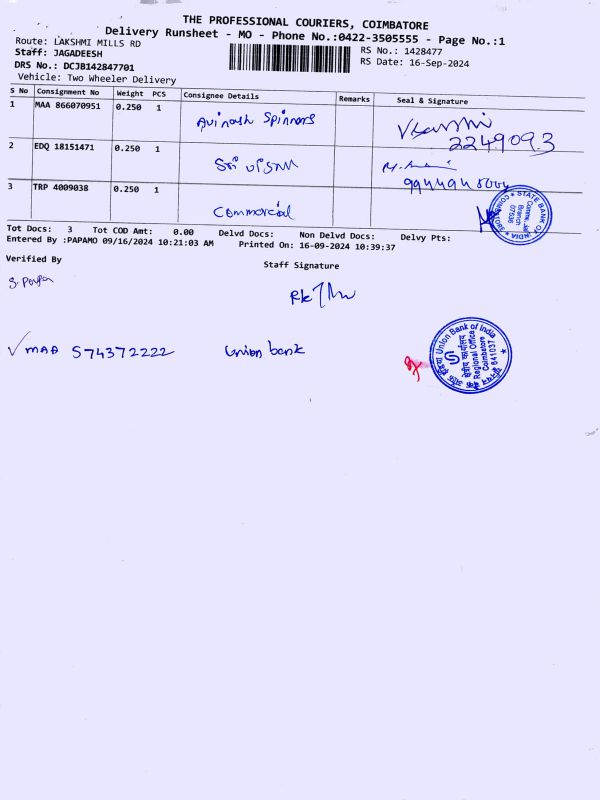 THE PROFESSIONAL COURIERS, COIMBATORE
Delivery Runsheet - MO - Phone No.:0422-3505555 - Page No.:1
Route: LAKSHMI MILLS RD
Staff: JAGADEESH
DRS No.: DCJB142847701
Vehicle: Two Wheeler Delivery
RS No.: 1428477
RS Date: 16-Sep-2024
S No Consignment No Weight PCS Consignee Details Remarks Seal & Signature
1 MAA 866070951 0.250 1 Avinash Spinners
2249093
2 EDQ 18151471 0.250 1 Sri
3 TRP 4009038 0.250 1 Commercial
STATE BANK OF INDIA
Branch
07536
Tot Docs: 3 Tot COD Amt: 0.00 Delvd Docs: Non Delvd Docs: Delvy Pts:
Entered By :PAPAMO 09/16/2024 10:21:03 AM Printed On: 16-09-2024 10:39:37
Verified By
Staff Signature
MAA 574372222 Union bank
Union Bank of India
क्षेत्रीय कार्यालय
Regional Office
Coimbatore
641037